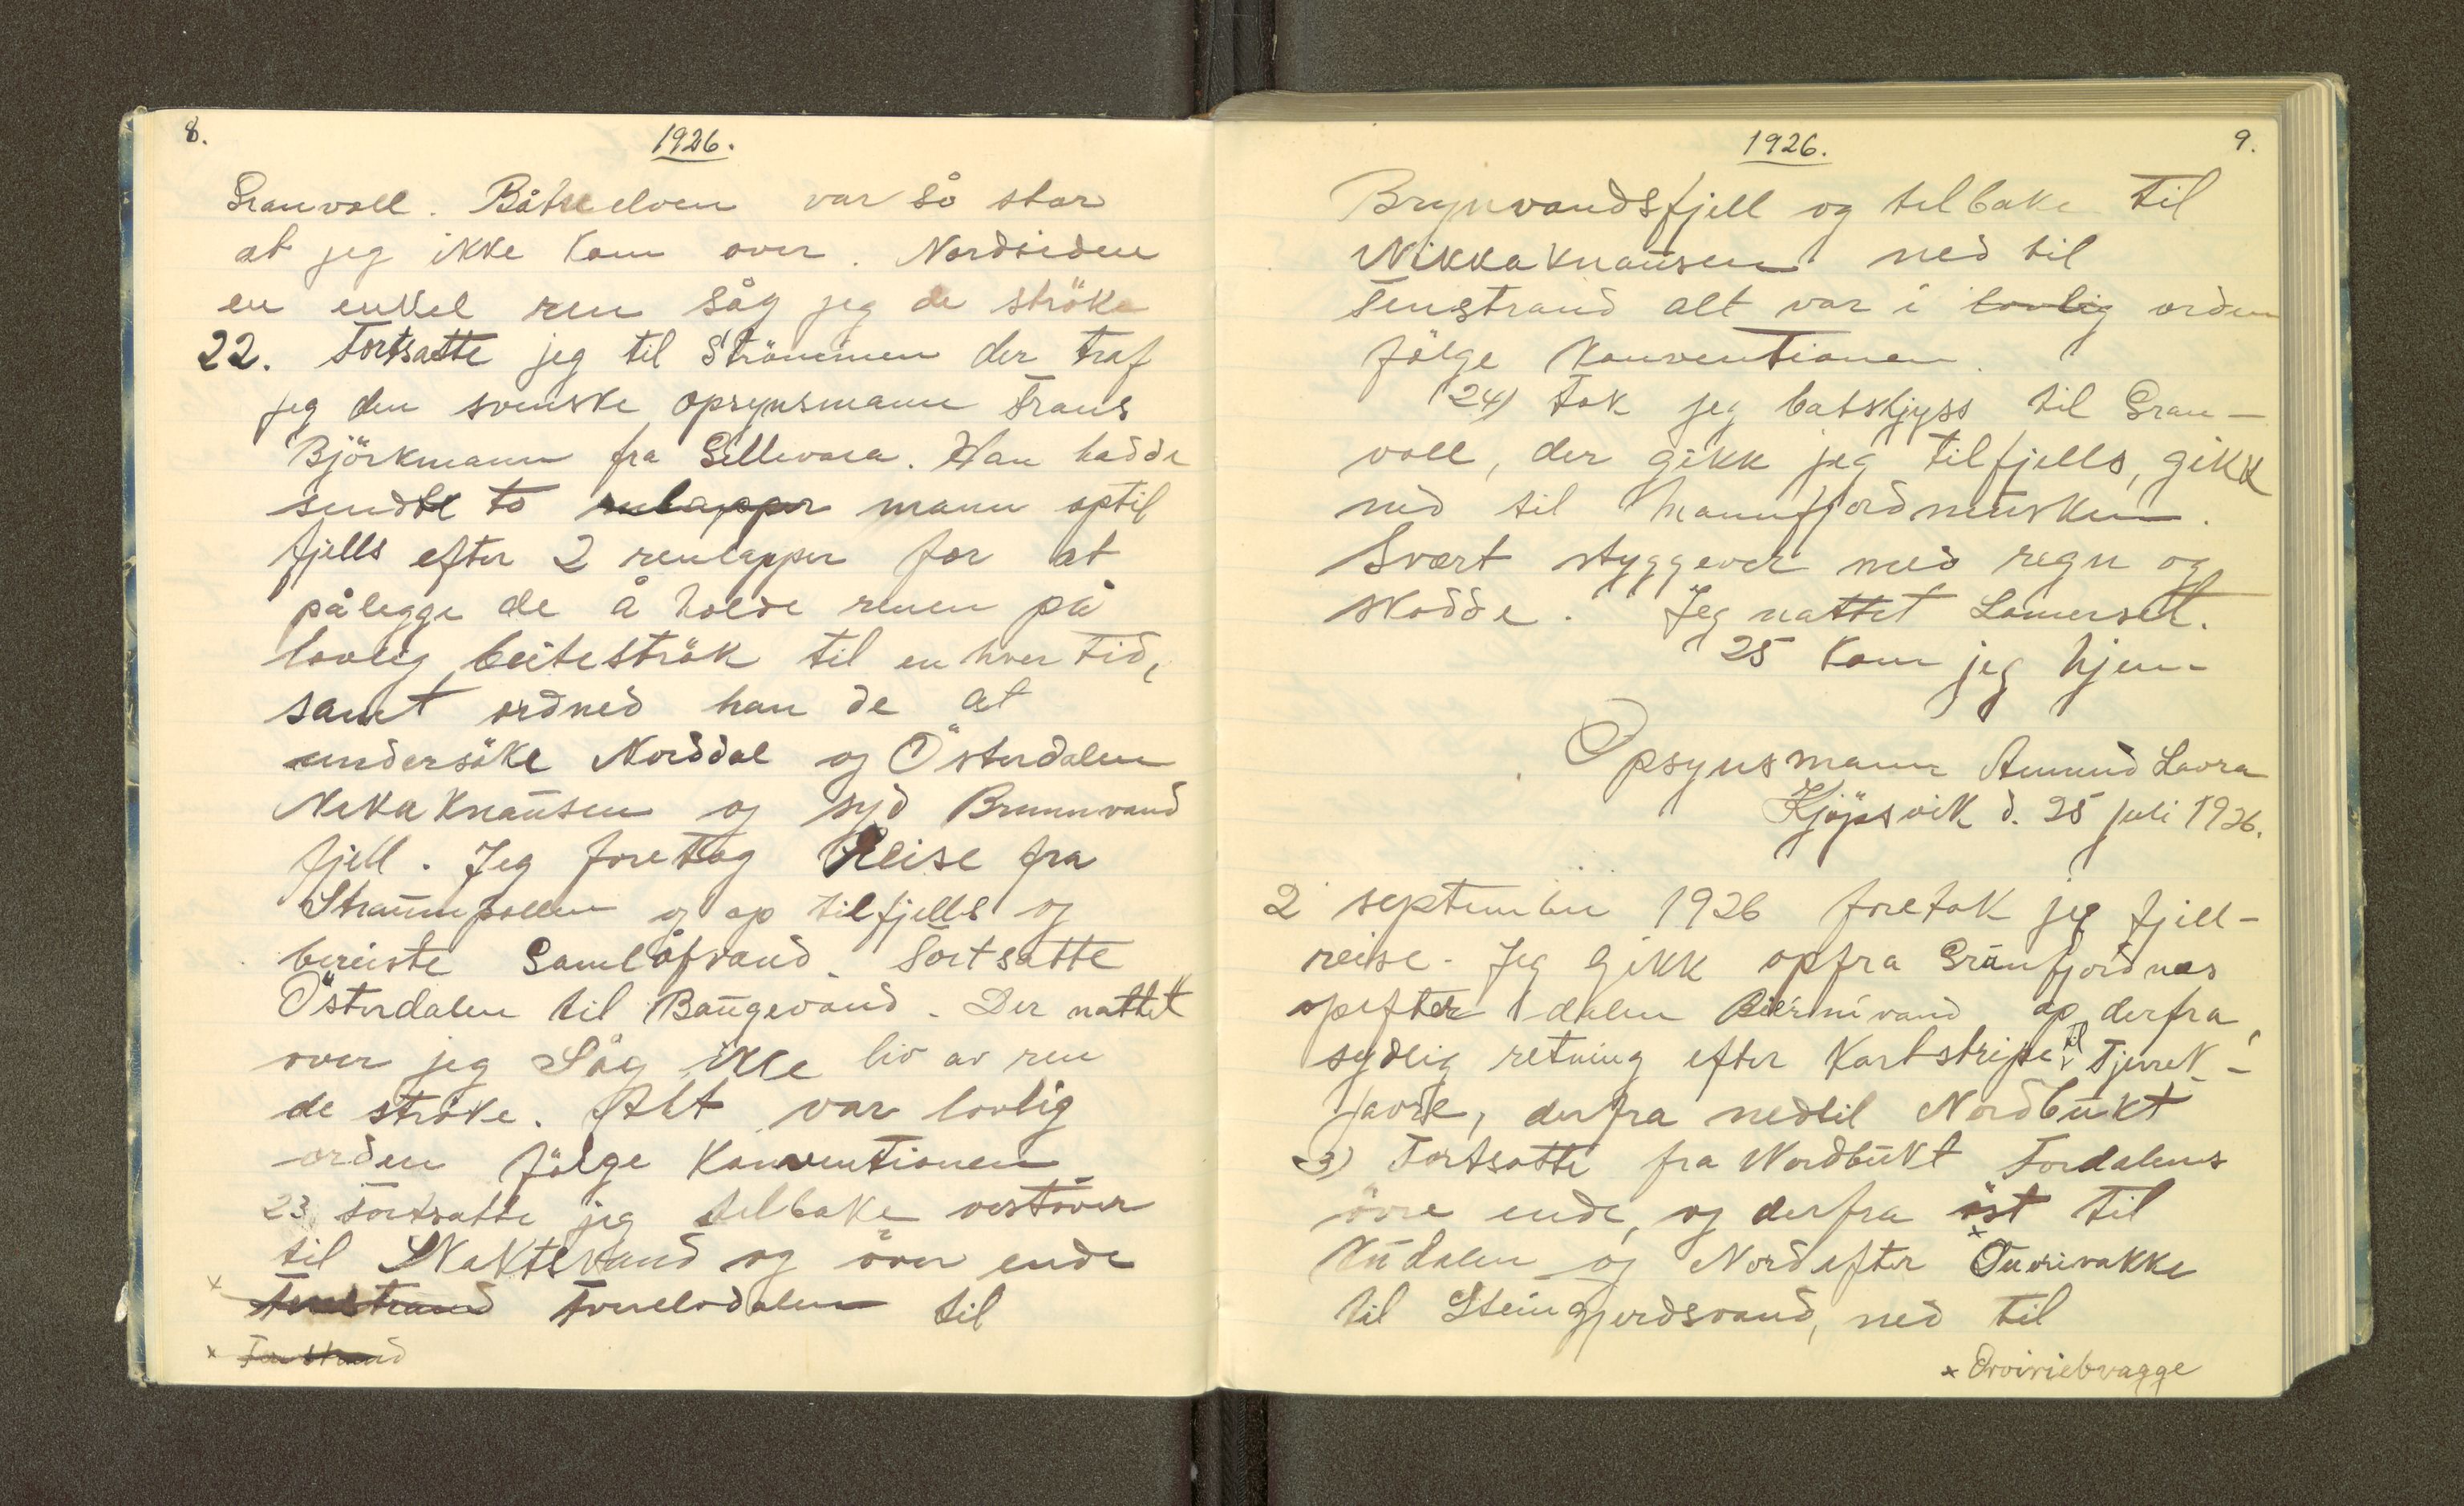 8.
1926.
Granvoll. Båtselven var så stor
at jeg ikke kom over. Nordsiden
en enkel ren såg jeg de ströke
22. Fortsatte jeg til Strömmen der traf
jeg den svenske opsynsmann Frans
Björkmann fra Gellivara. Han hadde
sendte to renlapper mann optil
fjells efter 2 renlapper for at
pålegge de å holde renen på
lovlig beitesträk til en hver tid,
samt ordned han de at
undersöke Norddal og Österdalen
Nekaknausen og syd Brunnvand
fjell. Jeg foretog Reise fra
Straumpollen og op tilfjells og
bereiste Gamlåfvand. Fortsatte
Österdalen til Baugevand. Der nattet
over jeg Såg ikke liv av ren
de ströke. Alt var lovlig
orden fölge Konventionen
23. Fortsatte jeg tilbake vestöver
til Skaktevand og över ende
x Fenstrand til
x Fenstrand
1926.
9.
Brynvandsfjell og tilbake til
Nikkaknausen ned til
Tenstrand alt var i lovlig orden
fölge Konventionen.
24) tok jeg batskjyss til Gran-
voll, der gikk jeg tilfjells, gikk
ned til Mannfjord
Svært styggever med regn og
skodde. Jeg nattet Lomerset.
25 kom jeg hjem
Opsynsmann Amund Lavra
Kjöpsvik d. 25 juli 1926.
2 september 1926 foretok jeg fjell-
reise. Jeg gikk opfra Grunfjordnes
opefter dalen op derfra,
sydlig retning efter Kartstripe til Tjerrek-
javre, derfra nedtil Nordbukt
3) Fortsatte fra Nordbukt Fordalens
övre ende, og derfra öst til
dalen og Nordefter x
til Steingjerdsvand, ned til
x Orviriebvagge